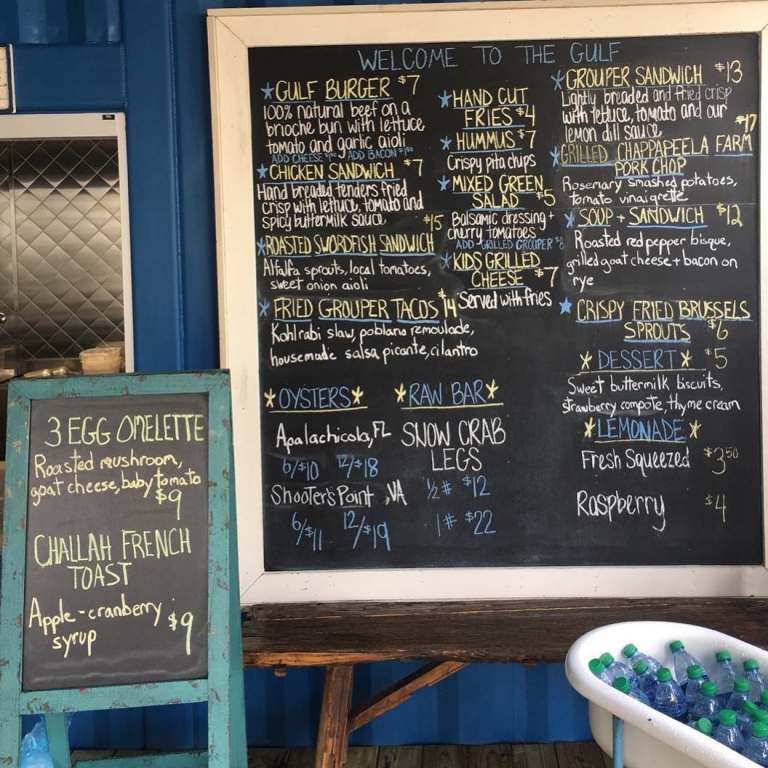 WELCOME TO THE GULF
GULF BURGER $7
100% natural beef on a
brioche bun with lettuce
tomato and garlic aioli
ADD CHEESE ADD BACON
CHICKEN SANDWICH $7
Hand breaded tenders fried
crisp with lettuce, tomato and
spicy buttermilk sauce
$15
ROASTED SWORDFISH SANDWICH
Alfalfa sprouts, local tomatoes,
sweet onion aioli
FRIED GROUPER TACOS $14
Kohlrabi slaw, poblano remoulade,
housemade salsa picante, cilantro
HAND CUT
FRIES $4
HUMMUS $7
Crispy pita chips
MIXED GREEN
SALAD $5
Balsamic dressing +
cherry tomatoes
ADD GRILLED GROUPER $8
KIDS GRILLED
CHEESE $7
Served with fries
GROUPER SANDWICH $13
Lightly breaded and fried crisp
with lettuce, tomato and our
lemon dill sauce
$17
GRILLED CHAPPAPEELA FARM
PORK CHOP
Rosemary smashed potatoes,
tomato vinaigrette
SOUP + SANDWICH $12
Roasted red pepper bisque,
grilled goat cheese + bacon on
rye
CRISPY FRIED BRUSSELS
SPROUTS $6
DESSERT $5
Sweet buttermilk biscuits,
strawberry compote, thyme cream
LEMONADE
Fresh Squeezed $3.50
Raspberry $4
OYSTERS
Apalachicola, FL
6/$10 12/$18
Shooter's Point, VA
6/$11 12/$19
RAW BAR
SNOW CRAB
LEGS
½# $12
1# $22
3 EGG OMELETTE
Roasted mushroom,
goat cheese, baby tomato
$9
CHALLAH FRENCH
TOAST
Apple-cranberry
syrup $9